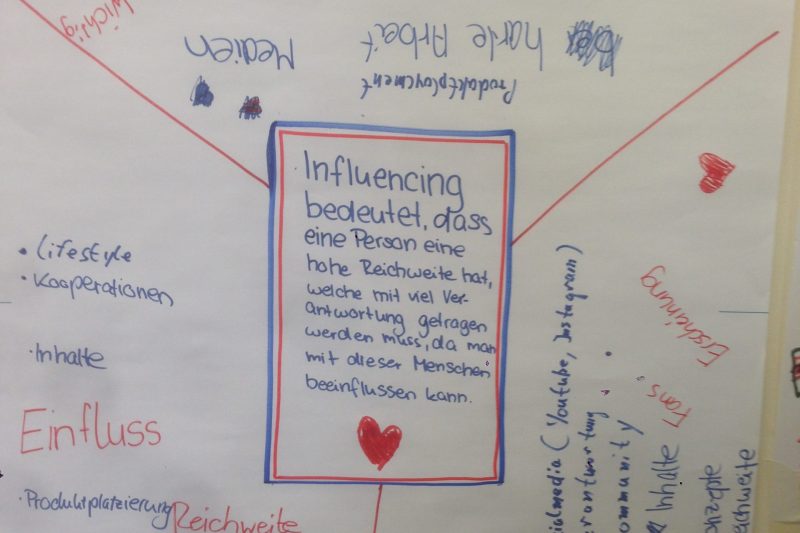 wichtig
Medien
harte Arbeit
Produktployement
Influencing
bedeutet, dass
eine Person eine
hohe Reichweite hat,
welche mit viel Ver-
antwortung getragen
werden muss, da man
mit dieser Menschen
beeinflussen kann.
• Lifestyle
• Kooperationen
• Inhalte
Einfluss
• Produktplatzierung
Reichweite
Erscheinung
Fans
ialmedia (Youtube, Instagram)
erantwortung
ommunity
Inhalte
onzepte
eichweite